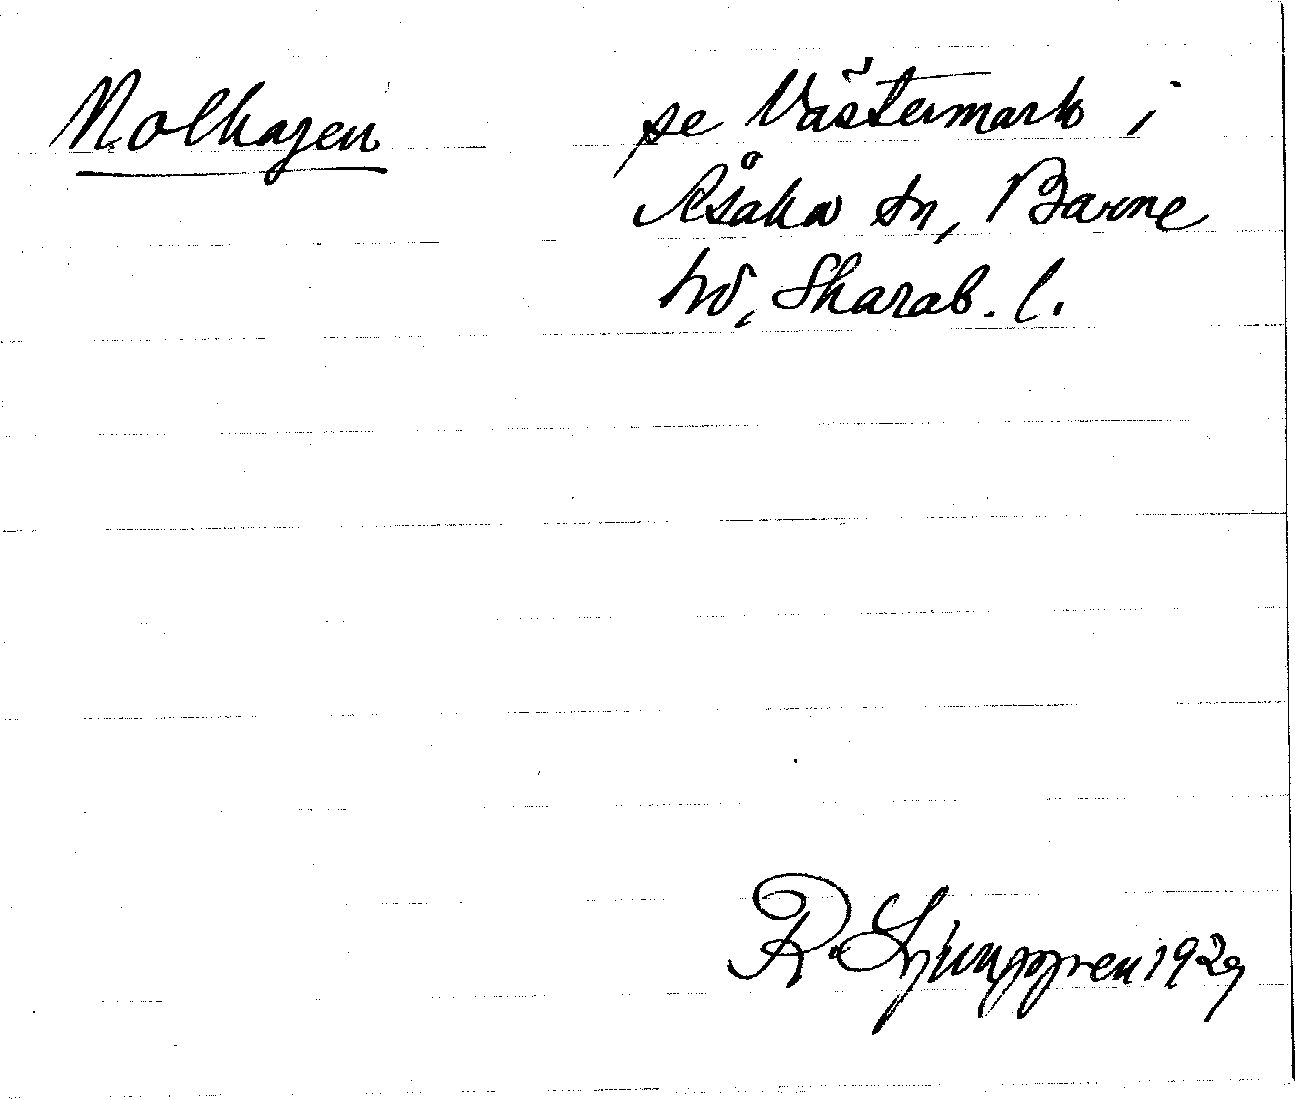 Nolhagen se Västermark i
Åsaka sn, Barne
hd, Skarab. l.
R. Ljunggren 1929